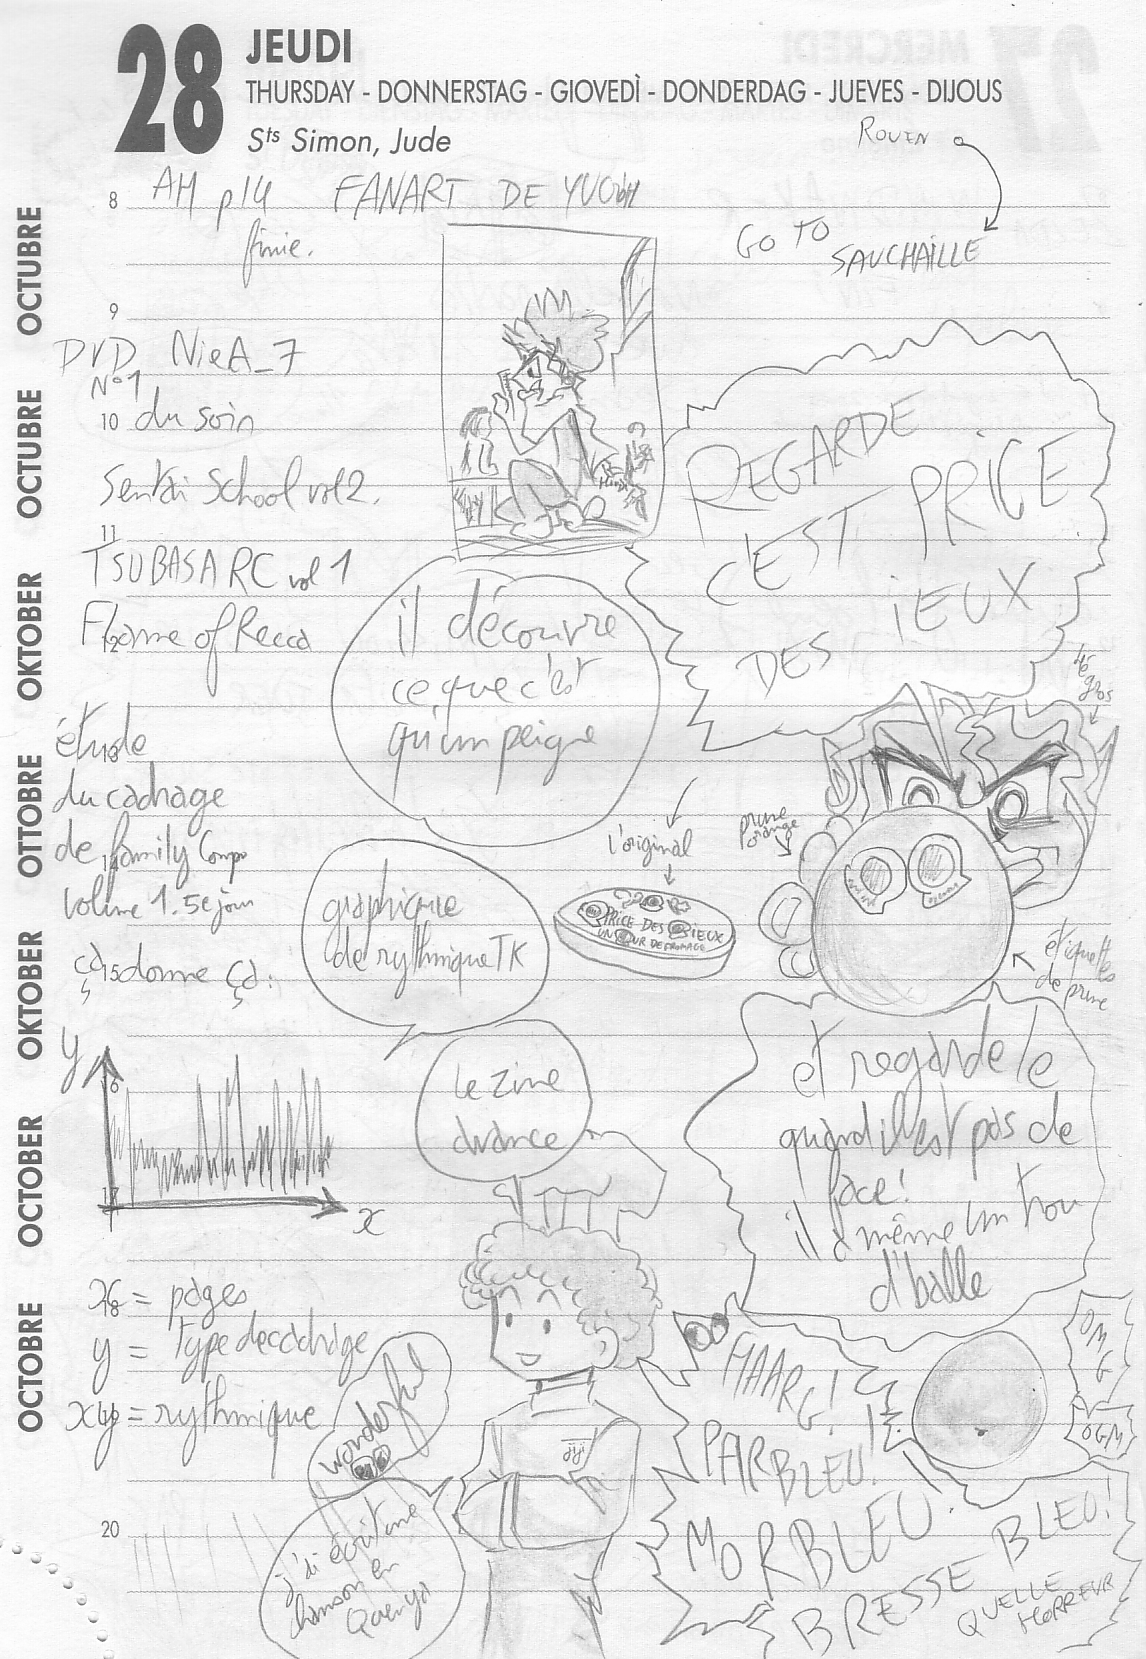 28 JEUDI
THURSDAY - DONNERSTAG - GIOVEDÌ - DONDERDAG - JUEVES - DIJOUS
Sts Simon, Jude
ROUEN
8
AM p14
finie.
FANART DE
GO TO
SAUCHAILLE
9
DVD NieA_7
N°1
10
du soin
Sentai School vol 2.
11
TSUBASA RC vol 1
12
Flame of Recca
REGARDE
C'EST PRICE
DES iEUX
il découvre
ce que c'est
qu'un peigne
étude
du cadrage
de family Compo
volume 1. 5e jour
ça donne ça :
13
14
15
16
17
18
20
graphique
de rythmique TK
l'original
PRICE DES IEUX
UN JOUR DE FROMAGE
prune
orange
gros
étiquettes
de prune
le zine
avance
et regarde le
quand il est pas de
face!
il a même un trou
d'balle
y
x
x = pages
y = type de cadrage
xy = rythmique
wonderful
j'ai écrit une
chanson en
Quenya
jiji
HAARG!
PARBLEU!
MORBLEU!
BRESSE BLEU!
QUELLE
HORREUR
OMG
OGM
OCTOBRE OCTOBER OKTOBER OTTOBRE OKTOBER OCTUBRE OCTUBRE
27 MERCREDI